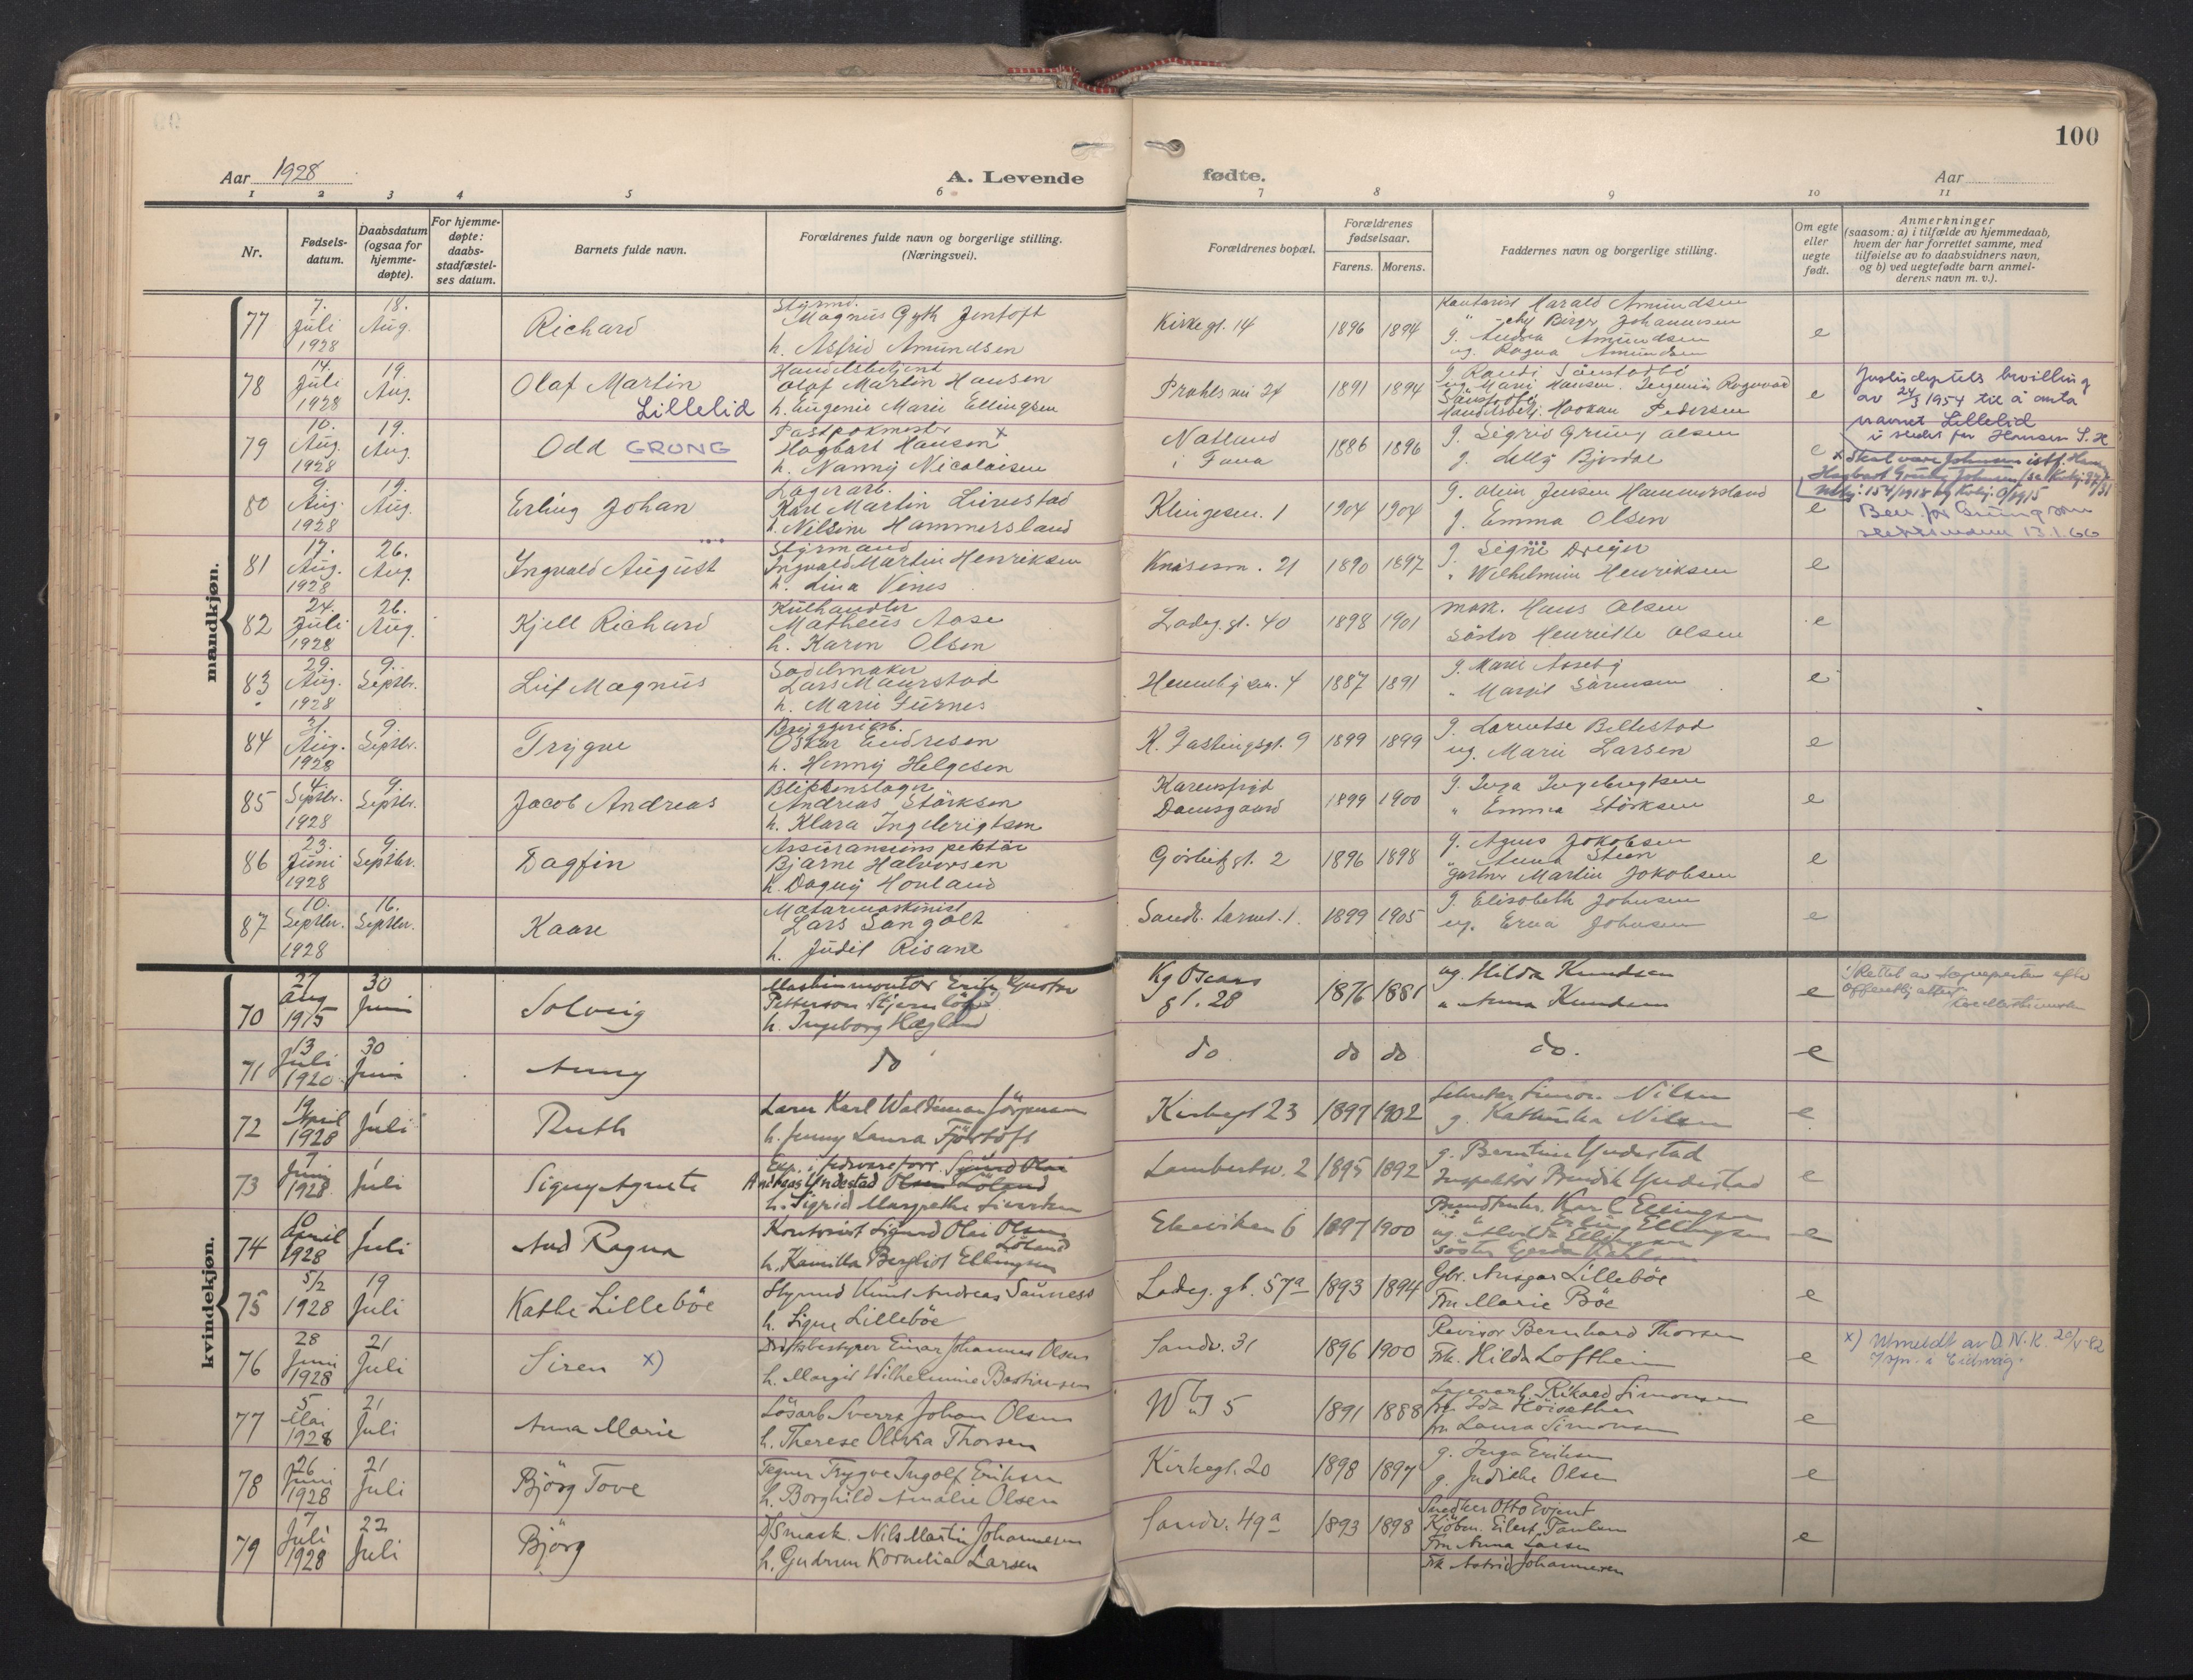 100
Aar 1928
A. Levende
fødte.
Aar
1 2 3 4 5 6 7 8 9 10 11
Nr.
Fødsels-
datum.
Daabsdatum
(ogsaa for
hjemme-
døpte).
For hjemme-
døpte:
daabs-
stadfæstel-
ses datum.
Barnets fulde navn.
Forældrenes fulde navn og borgerlige stilling.
(Næringsvei).
Forældrenes bopæl.
Forældrenes
fødselsaar.
Farens. Morens.
Faddernes navn og borgerlige stilling.
Om egte
eller
uegte
født.
Anmerkninger
(saasom: a) i tilfælde av hjemmedaab,
hvem der har forrettet samme, med
tilføielse av to daabsvidners navn,
og b) ved uegtefødte barn anmel-
derens navn m. v.).
mandkjøn.
77
7.
Juli
1928
18.
Aug.
Richard
Styrmd.
Magnus Gyth Jentoft
h. Astrid Amundsen
Kirkegt. 14
1896 1894
Kontorist Harald Amundsen
Birger Johannesen
g. Andrea Amundsen
ug. Ragna Amundsen
e
78
14.
Juli
1928
19.
Aug.
Olaf Martin
Lillelid
Handelsbetjent
Olaf Martin Hansen
h. Eugenie Marie Ellingsen
1891 1894
Handelsbetj. Haakon Pedersen
e
Justisdeptets bevilling
av 24/3 1954 til å anta
navnet Lillelid
i stedet for Hansen S.H
79
10.
Aug.
1928
19.
Aug.
Odd GRUNG
Postpakmester
Hagbart Hansen x
h. Nanny Nicolaisen
Natland
i Fana
1886 1896
g. Sigrid Grung Olsen
g. Lilly Bjordal
e
x Skal være Johnsen istf. Hansen
Hagbart Grung Johnsen
80
9.
Aug.
1928
19.
Aug.
Erling Johan
Lagerarb.
Karl Martin Lirestad
h. Nilsine Hammersland
Klingesm. 1
1904 1904
g. Oline Jensen Hammersland
g. Emma Olsen
e
Bev. for Grung som
slektsnavn 13.1.66
81
17.
Aug.
1928
26.
Aug.
Ingvald August
Styrmand
Ingvald Martin Henriksen
h. Lina Venes
Knøsesm. 21
1890 1897
g. Signe Dreyer
" Wilhelmine Henriksen
e
82
24.
Juli
1928
26.
Aug.
Kjell Richard
Kulhandler
Matheus Aase
h. Karen Olsen
Ladeg. gt. 40
1898 1901
mask. Hans Olsen
Søster Henriette Olsen
e
83
29.
Aug.
1928
9.
Septbr.
Leif Magnus
Sadelmaker
Lars Maurstad
h. Marie Furnes
1887 1891
g. Marie Aaseby
" Margit Sørensen
e
84
31.
Aug.
1928
9.
Septbr.
Trygve
Bryggeriarb.
Oskar Endresen
h. Henny Helgesen
K. Fastingsgt. 9
1899 1899
g. Larentse Beltestad
ug. Marie Larsen
e
85
4.
Septbr.
1928
9.
Septbr.
Jacob Andreas
Blikkenslager
Andreas Størksen
h. Klara Ingebrigtsen
Karensfryd
Damsgaard
1899 1900
g. Inga Ingebrigtsen
" Emma Størksen
e
86
23.
Juni
1928
9.
Septbr.
Dagfin
Assuranseinspektør
Bjarne Halvorsen
h. Dagny Hovland
Gørbitzgt. 2
1896 1898
g. Agnes Jakobsen
" Anna Steen
gartner Martin Jakobsen
e
87
10.
Septbr.
1928
16.
Septbr.
Kaare
Motormaskinist
Lars Sangolt
h. Judit Risane
1899 1905
g. Elisabeth Johnsen
ug. Erna Johnsen
e
kvindekjøn.
70
27
aug
1915
30
Juni
Solveig
Maskinmontør Erik Gustav
Petterson Stjernlöf
h. Ingeborg Hægland
Kg Oscars
gt. 28
1876 1881
ug. Hilda Knudsen
" Anna Knudsen
e
71
13
Juli
1920
30
Juni
Anny
do
do do do
do.
e
72
19
April
1928
1
Juli
Ruth
Lærer Karl Waldemar Jörgensen
h. Jenny Laura Fjörtoft
Kirkegt 23
1897 1902
Nilsen
g. Kathinka Nilsen
e
73
7
Juni
1928
1
Juli
Signy Agnete
Andreas Yndestad Olsen Löland
h. Sigrid Margrethe
Lambertsv. 2
1895 1892
g. Berntine Yndestad
Inspektör Yndestad
e
74
10
April
1928
1
Juli
Aud Ragna
Kontorist Sigurd Olai Olsen
Löland
h. Kamilla Bergliot Ellingsen
Ekeviken 6
1897 1900
Karl Ellingsen
Erling Ellingsen
e
75
5/2
1928
19
Juli
Kathe Lillebøe
Styrmd Knut Andreas Sauness
h. Signe Lillebøe
Ladeg. gt. 57a
1893 1894
Gbr. Ansgar Lillebøe
Fru Marie Bøe
e
76
28
Juni
1928
21
Juli
Siren x)
Driftsbestyrer Einar Johannes Olsen
h. Margit Wilhelmine Bastiansen
Sandv. 31
1896 1900
Revisor Bernhard Thorsen
Frk. Hilda Loftheim
e
x) Utmeldt av D.N.K. 20/4-82
77
5
Mai
1928
21
Juli
Anna Marie
Løsarb Sverre Johan Olsen
h. Therese Olivia Thorsen
1891 1888
Lagerarb. Rikard Simonsen
fru Laura Simonsen
e
78
26
Juni
1928
21
Juli
Björg Tove
Tegner Trygve Ingolf Eriksen
h. Borghild Amalie Olsen
Kirkegt. 20
1898 1897
g. Inga Eriksen
g. Judithe Olsen
e
79
7
Juli
1928
22
Juli
Björg
D/Smask. Nils Martin Johannesen
h. Gudrun Kornelia Larsen
Sandv. 49a
1893 1898
Snedker Otto Evjent
Kjöbm. Eilert Paulsen
Fru Anna Larsen
Frk Astrid Johannesen
e